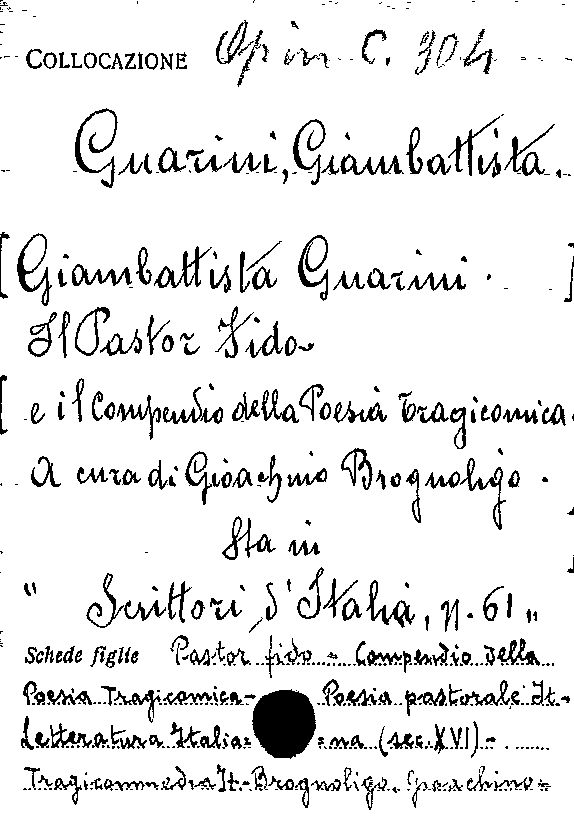 COLLOCAZIONE Op in C. 304
Guarini, Giambattista.
[Giambattista Guarini. ]
Il Pastor Fido
[ e il Compendio della Poesia Tragicomica.
A cura di Gioachino Brognoligo.
Sta in
" Scrittori d'Italia, n. 61 "
Schede figlie Pastor fido = Compendio della
Poesia Tragicomica - Poesia pastorale It-
Letteratura Italia= =na (sec. XVI) -
Tragicommedia It-Brognoligo, Gioachino=